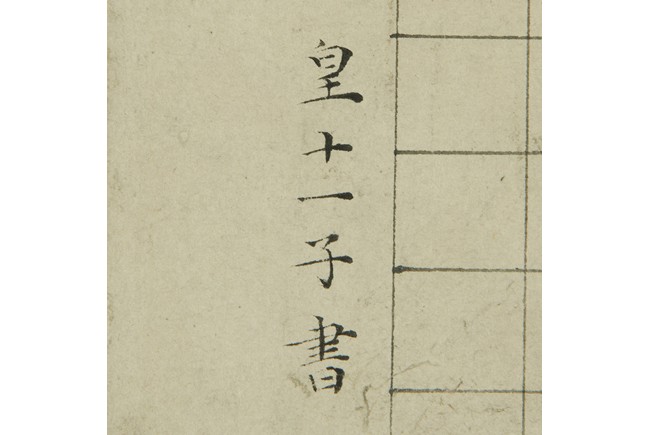 皇十一子書